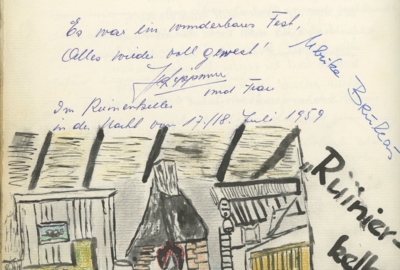 Es war ein wunderbares Fest,
Alles wieder voll gewest!
und Frau
Im Ruinenkeller
in der Nacht vom 17./18. Juli 1959
Ulrika
"Ruinier-
kell